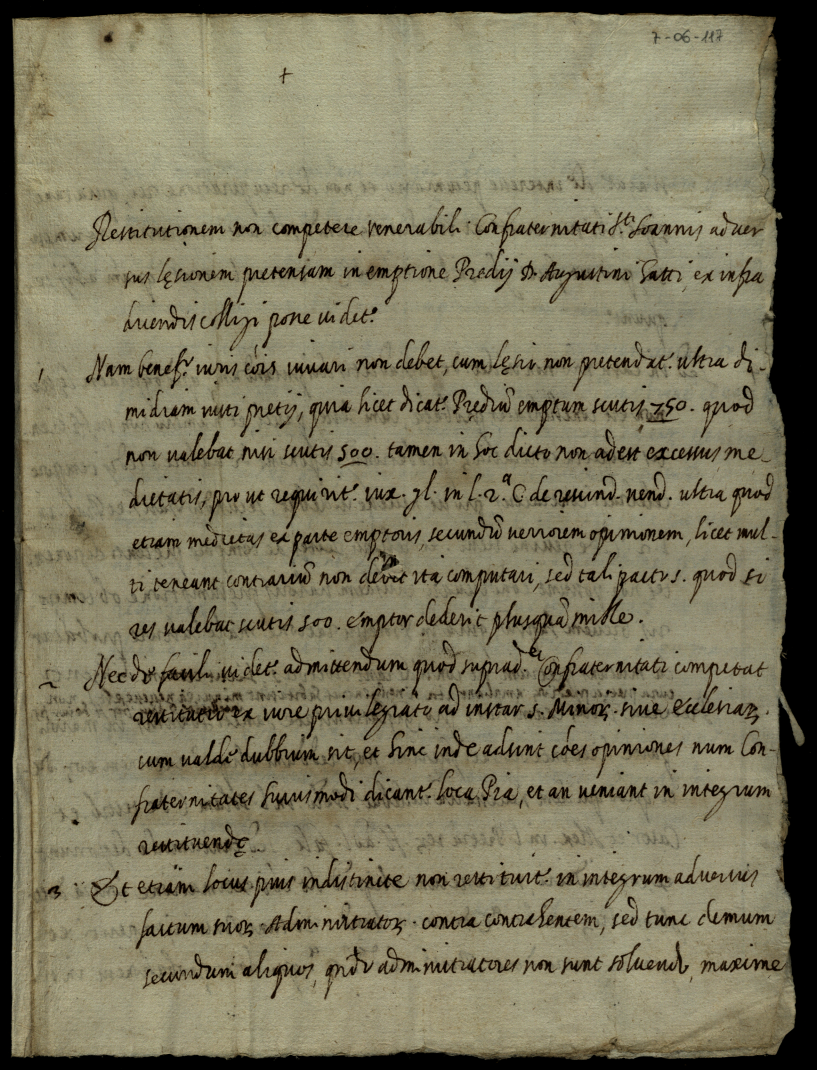 7-06-117
+
Restitutionem non competere venerabili Confraternitati S.ti Joannis adver
sus lęsionem pretensam in emptione Predij D. Augustini Gatti, ex infra
dicendis colligi posse videt.r
1 Nam benef.o iuris cõis iuvari non debet, cum lęsio non pretendat.r ultra di-
midiam iusti pretij, quia licet dicat.r Prędiũ emptum scutis 750. quod
non valebat nisi scutis 500. tamen in hoc dicto non adest excessus me-
dietatis, prout requirit.r iux. gl. in l. 2.a C de rescind. vend. ultra quod
etiam medietas ex parte emptoris, secundũ veriorem opinionem, licet mul-
ti teneant contrariũ non debet ita computari, sed tali pacto s. quod si
res valebat scutis 500. emptor dederit plusquã mille.
2 Nec de facili videt.r admittendum quod suprad.e Confraternitati competat
restitutio ex iure privilegiato ad instar s. Minoꝝ sive Ecclesiaꝝ.
cum valde dubbium sit, et hinc inde adsint cões opiniones num Con-
fraternitates huiusmodi dicant.r loca Pia, et an veniant in integrum
restituendę.
3 Et etiam locus pius indistincte non restituit.r in integrum adversus
factum suoꝝ Administratoꝝ contra contrahentem, sed tunc demum
secundum aliquos, qñdo administratores non sunt solvendo, maxime